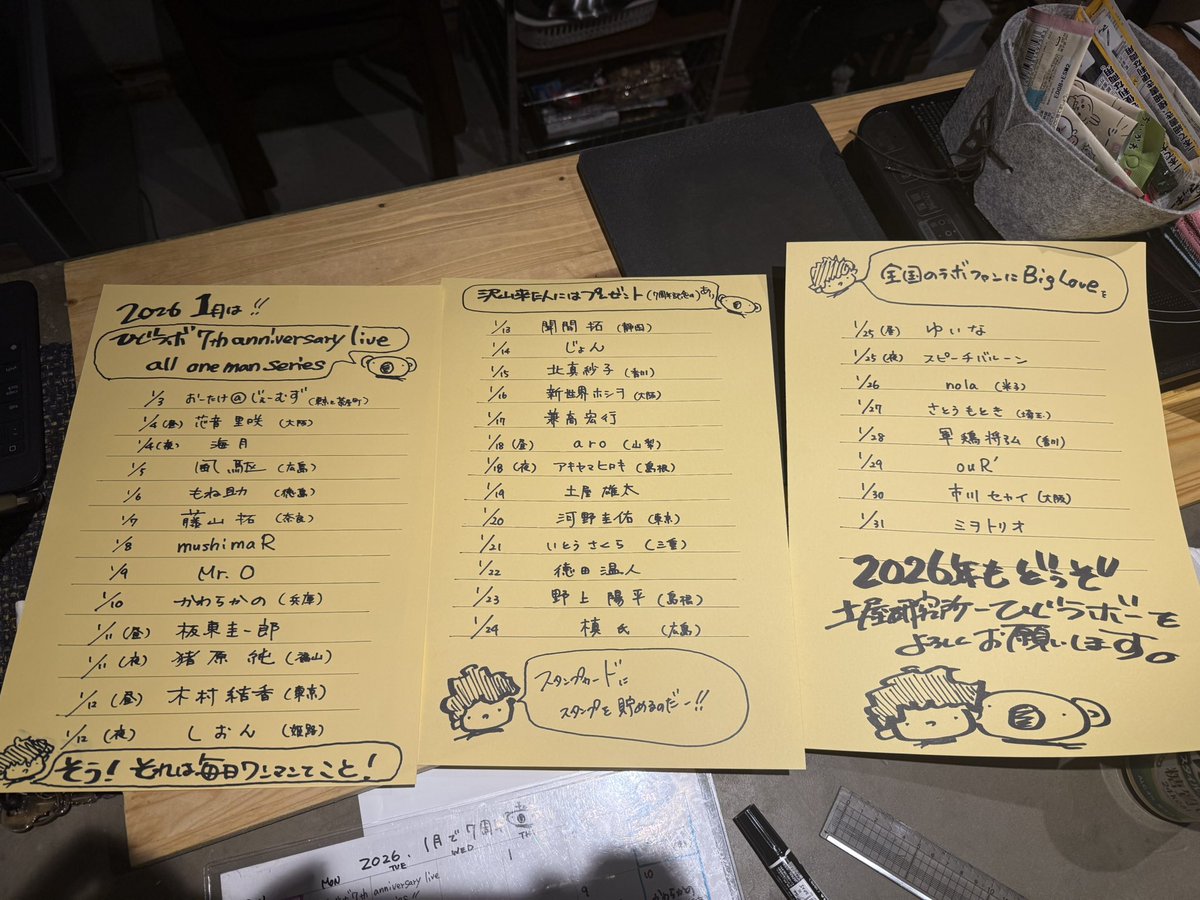 2026 1月は!!
ひじラボ 7th anniversary live
all one man series
1/3 おーたけ@じぇーむず (東京と茶屋町)
1/4(昼) 花音里咲 (大阪)
1/4(夜) 海月
1/5 風駆 (広島)
1/6 もね助 (徳島)
1/7 藤山拓 (奈良)
1/8 mushimaR
1/9 Mr.O
1/10 かわらかの (兵庫)
1/11(昼) 板東圭一郎
1/11(夜) 猪原純 (福山)
1/12(昼) 木村結香 (東京)
1/12(夜) しおん (姫路)
そう!それは毎日ワンマンてこと!
沢山来た人にはプレゼント(7周年記念の)あり
1/13 聞間拓 (静岡)
1/14 じょん
1/15 北真紗子 (香川)
1/16 新世界ホシヲ (大阪)
1/17 兼高宏行
1/18(昼) aro (山梨)
1/18(夜) アキヤマヒロキ (島根)
1/19 土屋雄太
1/20 河野圭佑 (東京)
1/21 いとうさくら (三重)
1/22 徳田温人
1/23 野上陽平 (島根)
1/24 槙氏 (広島)
スタンプカードに
スタンプを貯めるのだー!!
全国のラボファンにBig Loveを
1/25(昼) ゆいな
1/25(夜) スピーチバルーン
1/26 nola (米子)
1/27 さとうもとき (埼玉)
1/28 軍鶏将弘 (香川)
1/29 ouR'
1/30 市川セカイ (大阪)
1/31 ミヲトリオ
2026年もどうぞ
土屋研究所ーひじラボーを
よろしくお願いします。
2026. 1月で7周
MON TUE WED TH
7th anniversary live
1
9
10
かわらかの